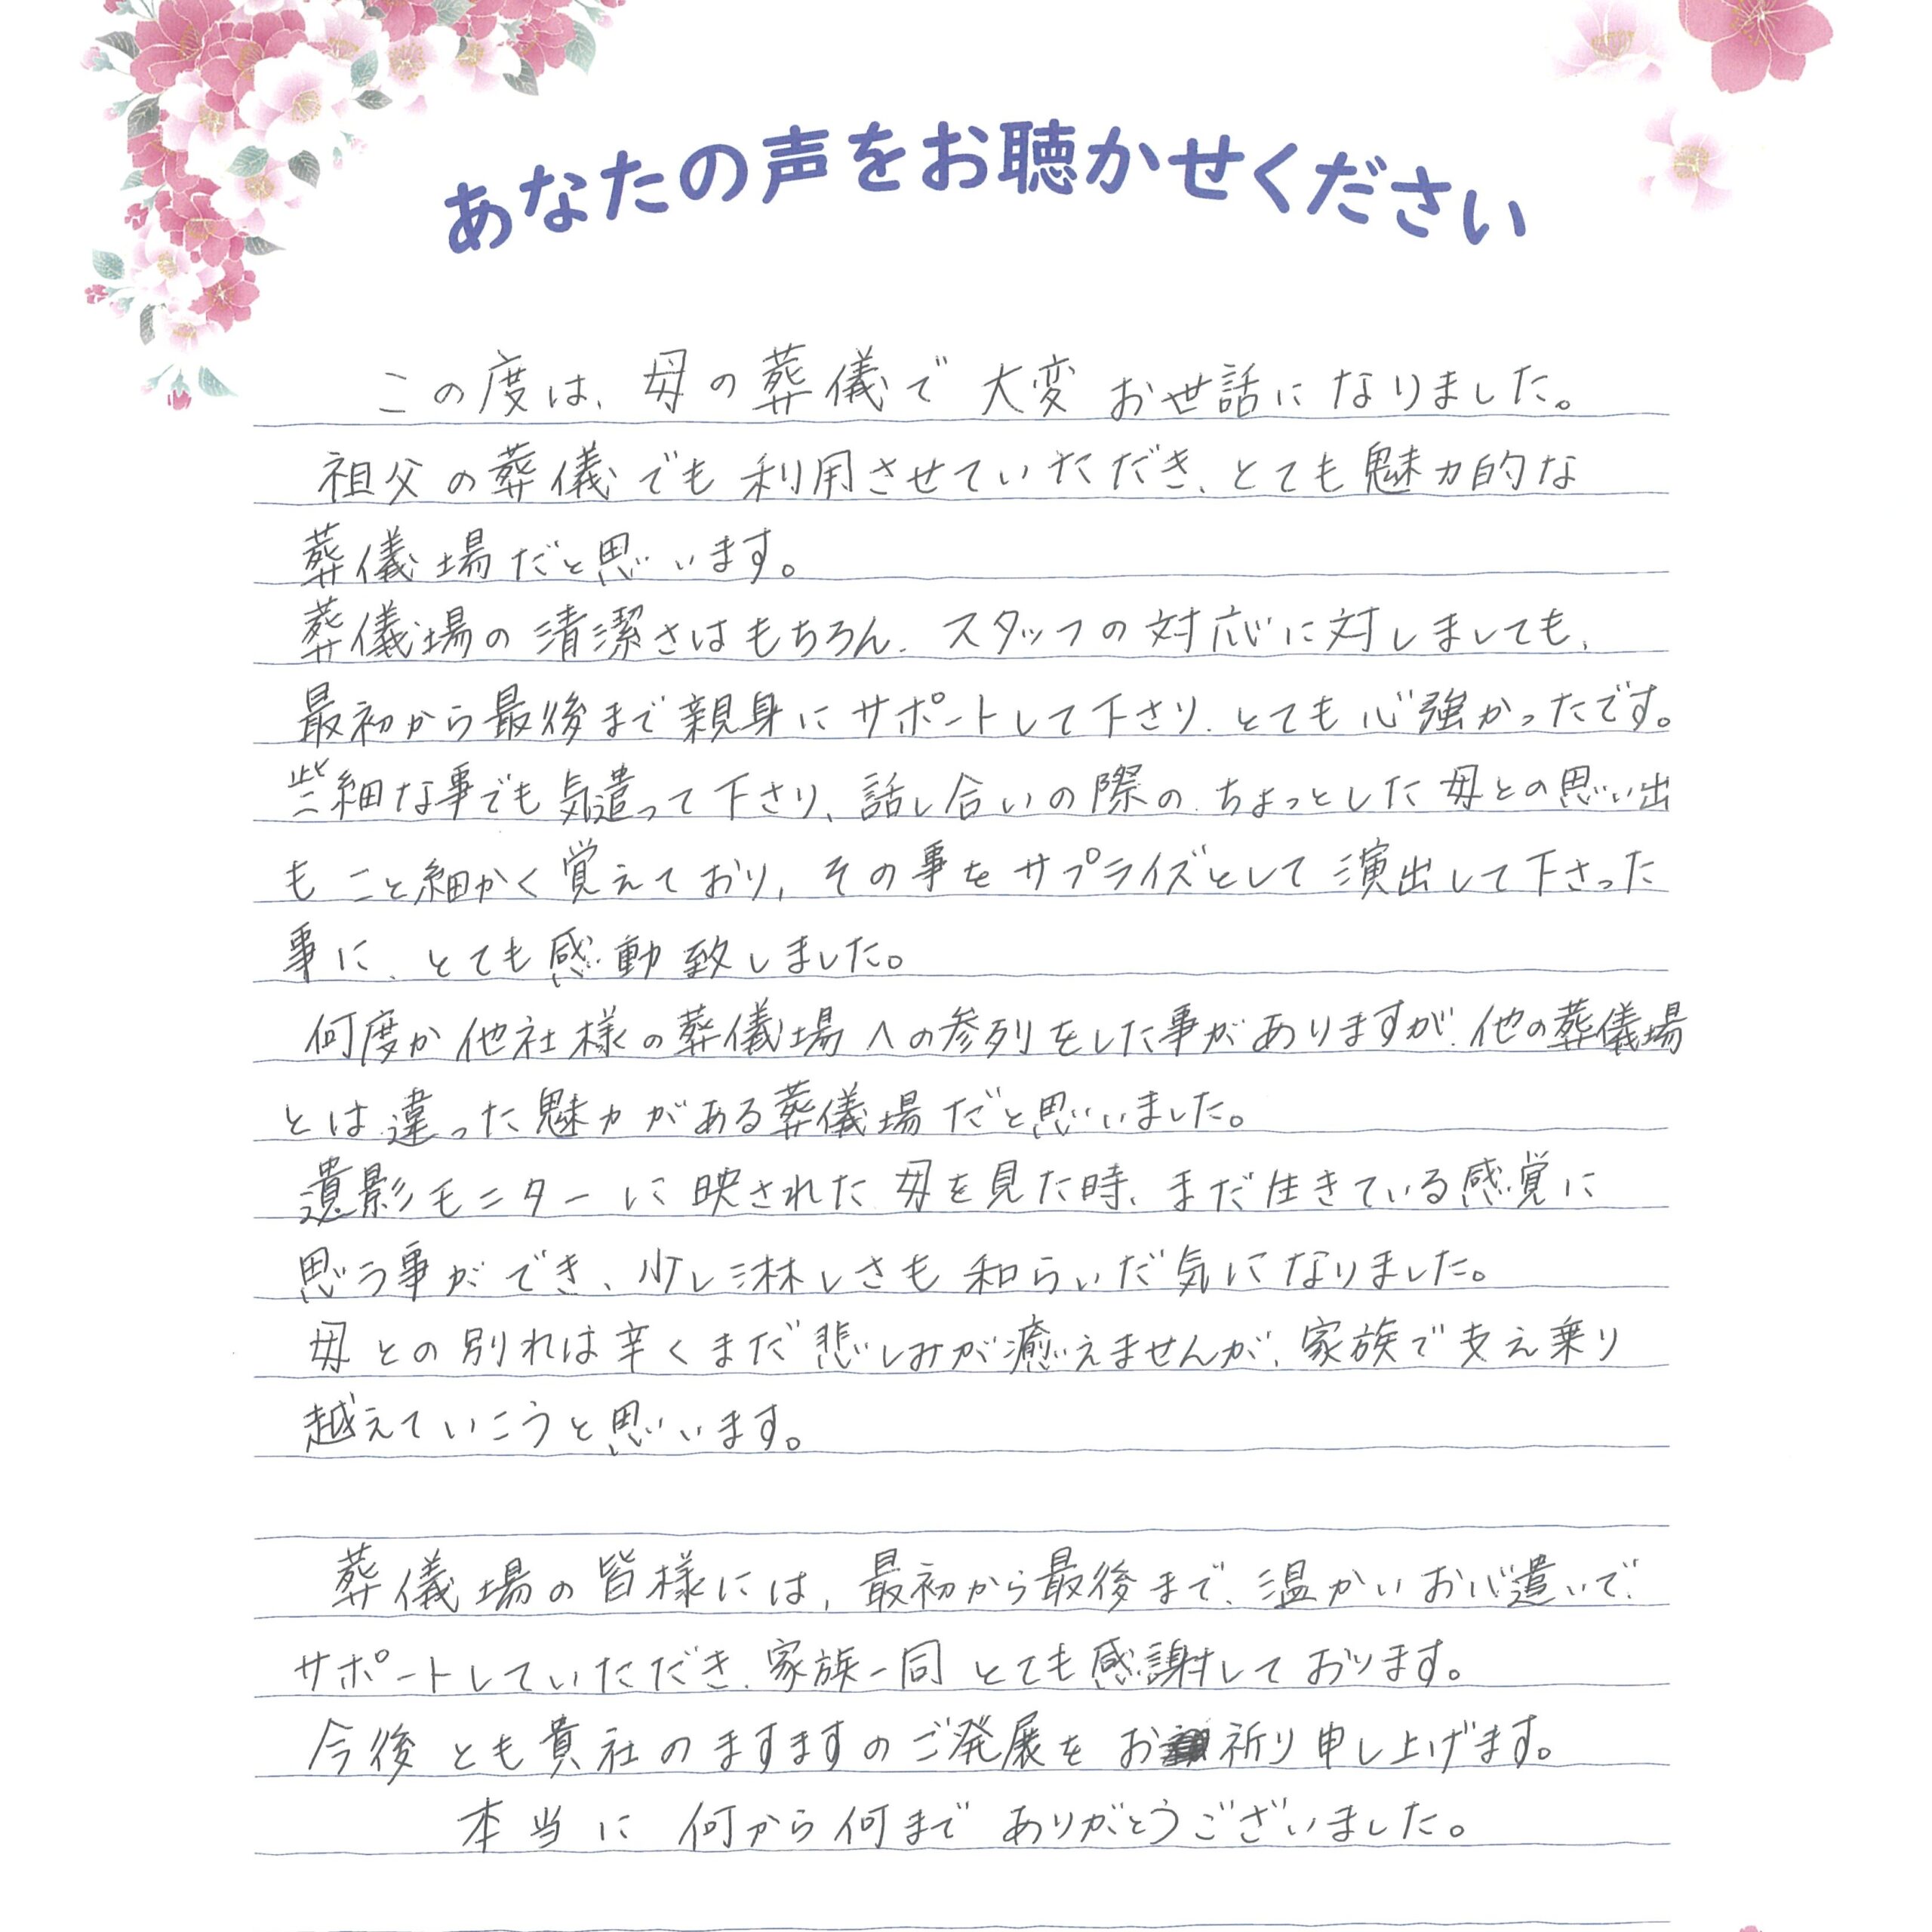 あなたの声をお聴かせください
この度は、母の葬儀で大変お世話になりました。
祖父の葬儀でも利用させていただき、とても魅力的な
葬儀場だと思います。
葬儀場の清潔さはもちろん、スタッフの対応に対しましても、
最初から最後まで親身にサポートして下さり、とても心強かったです。
些細な事でも気遣って下さり、話し合いの際の、ちょっとした母との思い出
もこと細かく覚えており、その事をサプライズとして演出して下さった
事に、とても感動致しました。
何度か他社様の葬儀場への参列をした事がありますが、他の葬儀場
とは違った魅力がある葬儀場だと思いいました。
遺影モニターに映された母を見た時、まだ生きている感覚に
思う事ができ、少し淋しさも和らいだ気になりました。
母との別れは辛くまだ悲しみが癒えませんが、家族で支え乗り
越えていこうと思います。
葬儀場の皆様には、最初から最後まで、温かいお心遣いで、
サポートしていただき、家族一同とても感謝しております。
今後とも貴社のますますのご発展をお祈り申し上げます。
本当に何から何までありがとうございました。